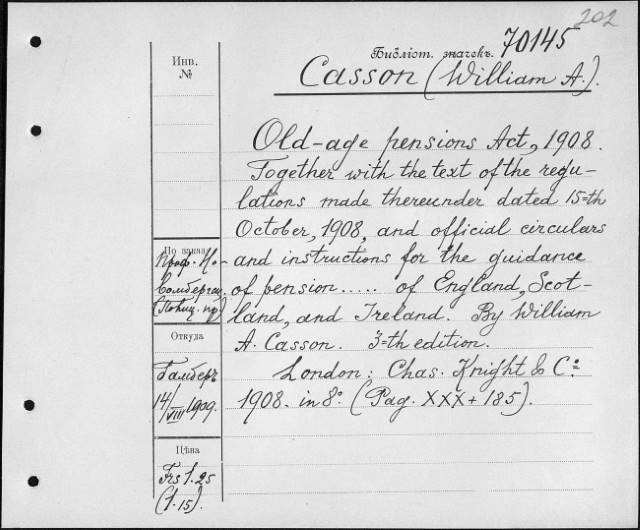 202
Библіот. значекъ. 70145
Инв.
№
Casson (William A.).
Old-age pensions Act, 1908.
Together with the text of the regu-
lations made thereunder dated 15=th
October, 1908, and official circulars
and instructions for the guidance
of pension..... of England, Scot-
land, and Ireland. By William
A. Casson. 3=th edition.
London: Chas. Knight & Cº
1908. in 8º. (Pag. XXX + 185).
По заказу
Проф.
Откуда
14/VIII 1909.
Цѣна
Frs 1.25
(1.15).